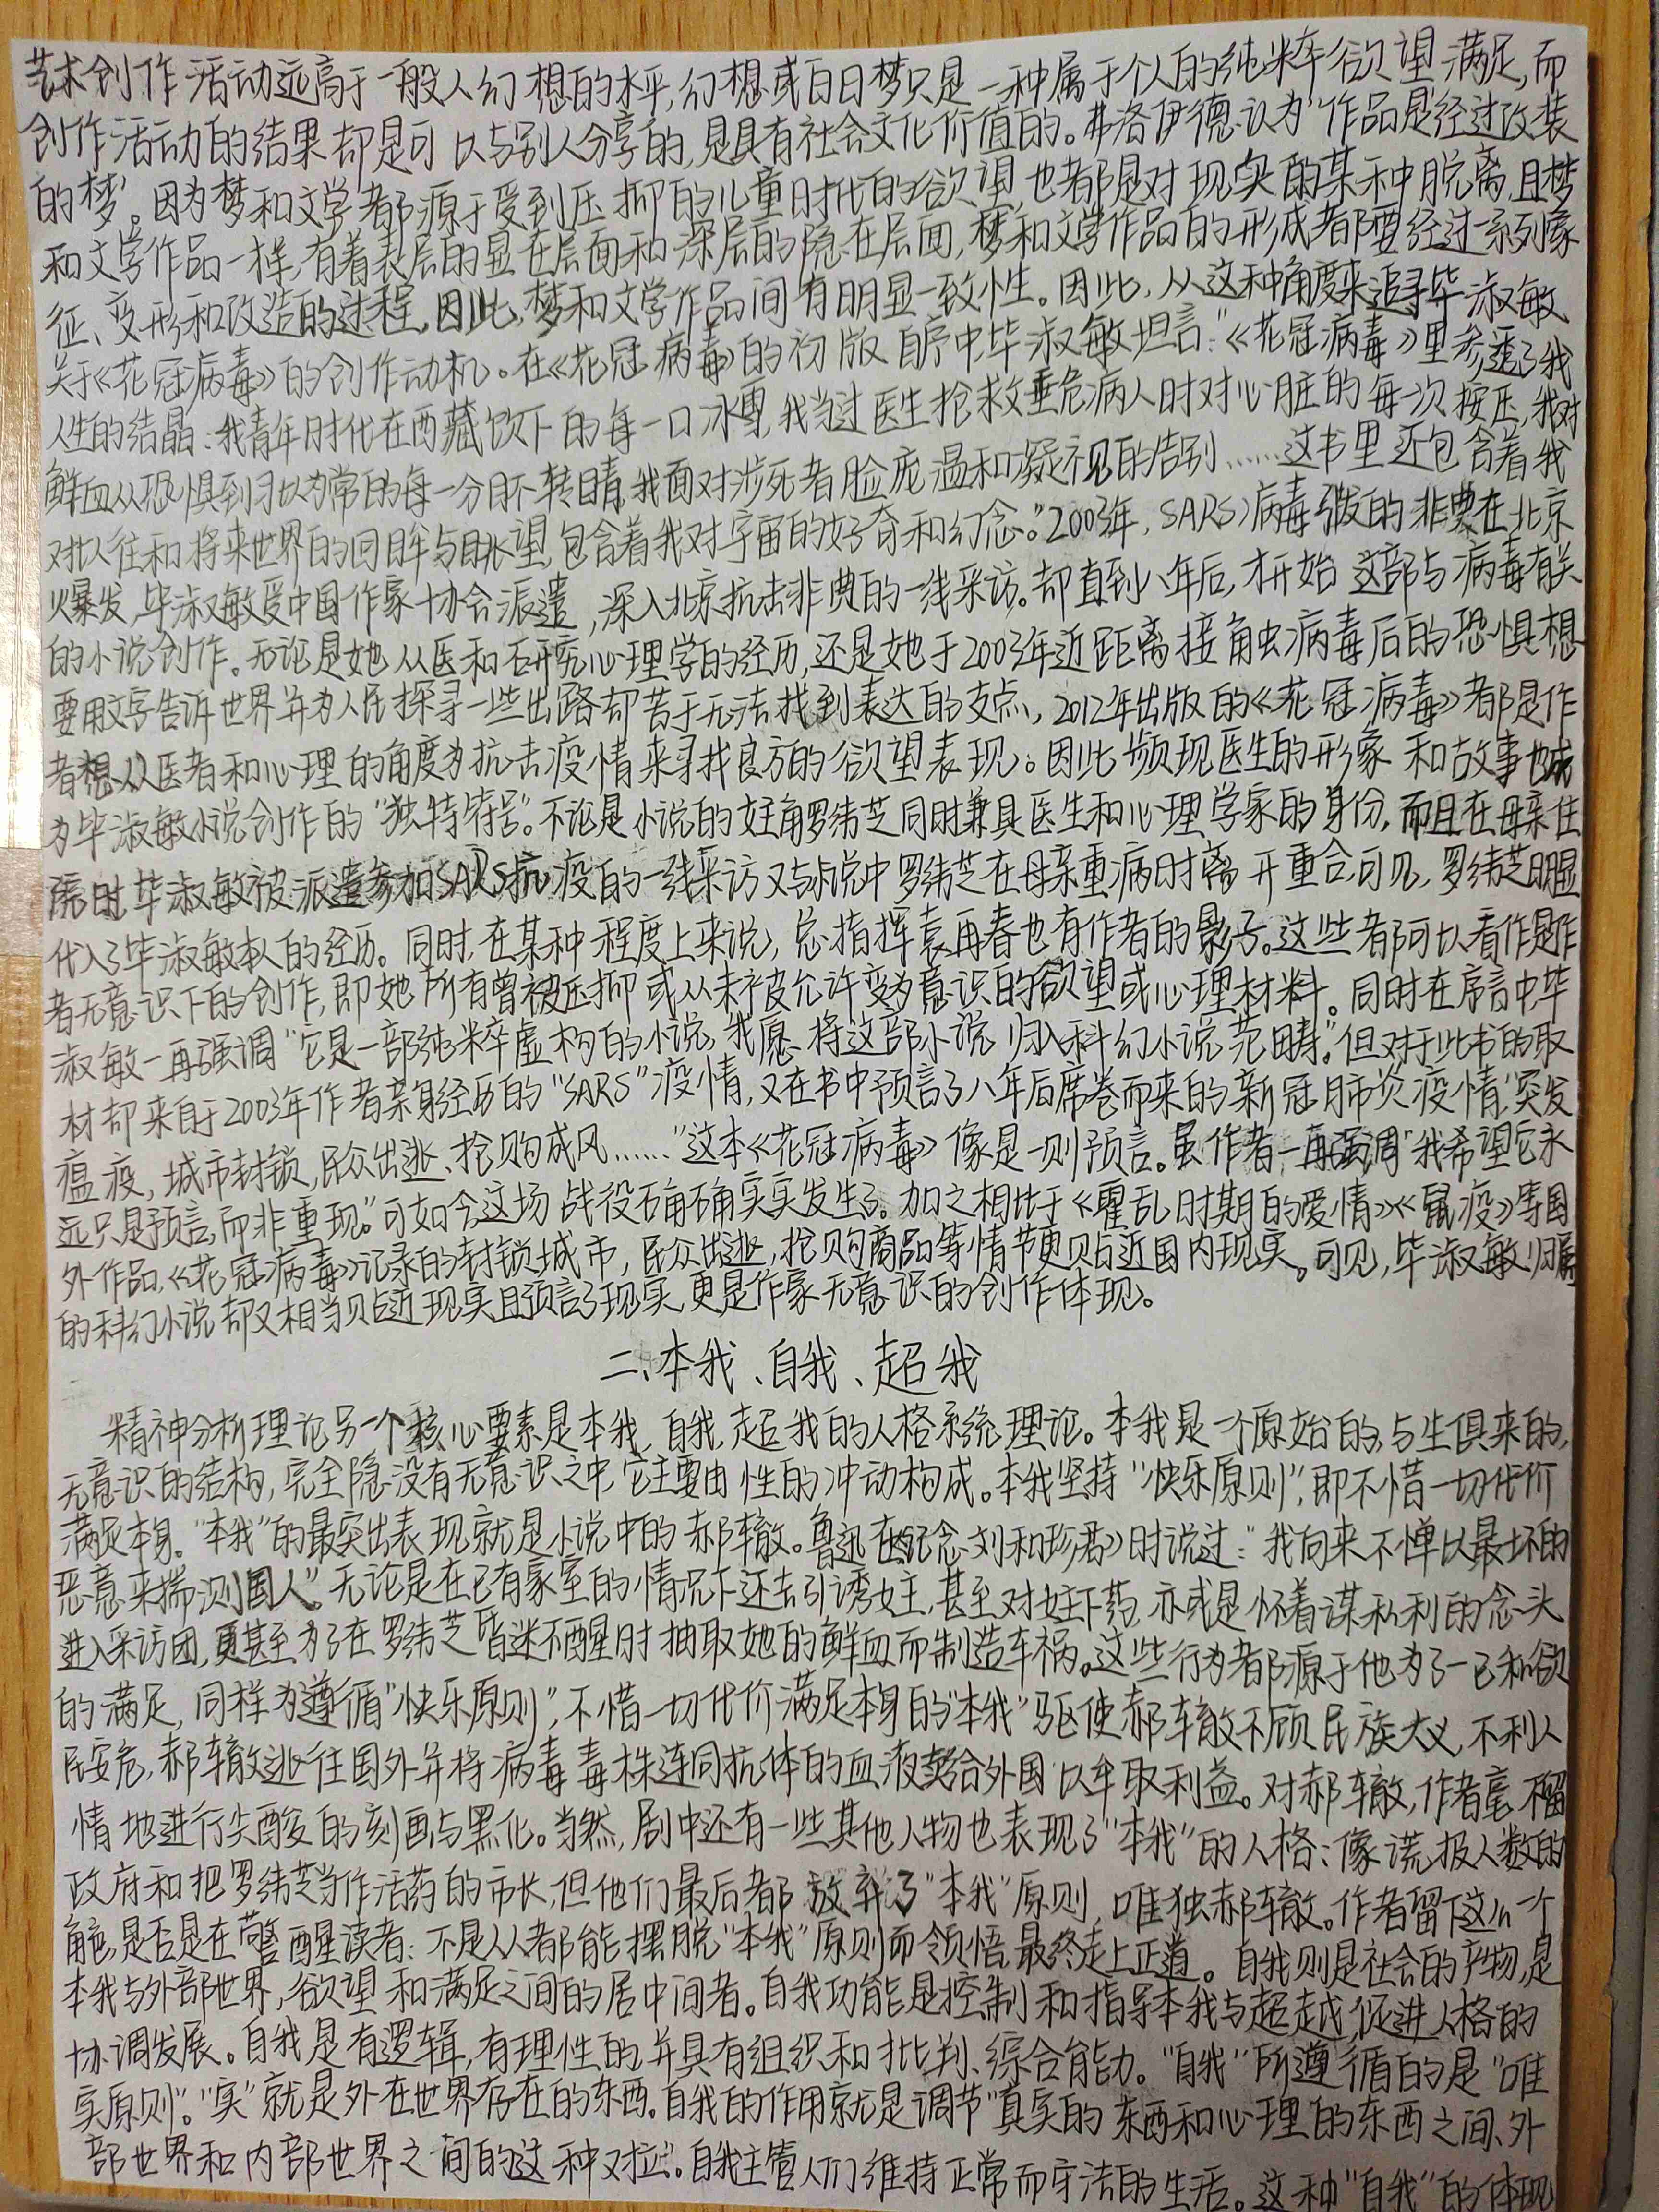 艺术创作活动远高于一般人幻想的水平,幻想或白日梦只是一种属于个人的纯粹欲望满足,而
创作活动的结果却是可以与别人分享的,是具有社会文化价值的。弗洛伊德认为“作品是经过改装
的梦”。因为梦和文学都源于受到压抑的儿童时代的欲望,也都是对现实的某种脱离,且梦
和文学作品一样,有着表层的显在层面和深层的隐在层面,梦和文学作品的形成都要经过一系列象
征、变形和改造的过程,因此,梦和文学作品间有明显一致性。因此,从这种角度来追寻毕淑敏
关于《花冠病毒》的创作动机。在《花冠病毒》的初版自序中,毕淑敏坦言:“《花冠病毒》里参透了我
人生的结晶:我青年时代在西藏饮下的每一口冰雪,我当过医生抢救垂危病人时对心脏的每一次按压,我对
鲜血从恐惧到习以为常的每一分目不转睛,我面对涉死者脸庞温和凝视的告别……这书里还包含着我
对以往和将来世界的回眸与眺望,包含着我对宇宙的好奇和幻念。”2003年,SARS病毒引发的非典在北京
爆发,毕淑敏受中国作家协会派遣,深入北京抗击非典的一线采访。却直到八年后,才开始这部与病毒有关
的小说创作。无论是她从医和研究心理学的经历,还是她于2003年近距离接触病毒后的恐惧想
要用文字告诉世界并为人民探寻一些出路却苦于无法找到表达的支点,2012年出版的《花冠病毒》都是作
者想从医者和心理的角度为抗击疫情来寻找良方的欲望表现。因此频现医生的形象和故事也成
为毕淑敏小说创作的“独特符号”。不论是小说的女主角罗纬芝同时兼具医生和心理学家的身份,而且在母亲住
院时,毕淑敏被派遣参加SARS抗疫的一线采访又与小说中罗纬芝在母亲重病时离开重合,可见,罗纬芝明显
代入了毕淑敏本人的经历。同时,在某种程度上来说,总指挥袁再春也有作者的影子。这些都可以看作是作
者无意识下的创作,即她所有曾被压抑或从未被允许变为意识的欲望或心理材料。同时在序言中毕
淑敏一再强调“它是一部纯粹虚构的小说,我愿将这部小说归入科幻小说范畴。”但对于此书的取
材却来自于2003年作者亲身经历的“SARS”疫情,又在书中预言了八年后席卷而来的新冠肺炎疫情,“突发
瘟疫,城市封锁,民众出逃、抢购成风……”这本《花冠病毒》像是一则预言。虽作者一再强调“我希望它永
远只是预言,而非重现。”可如今,这场战役确确实实发生了。加之相比于《霍乱时期的爱情》《鼠疫》等国
外作品,《花冠病毒》记录的封锁城市,民众出逃,抢购商品等情节更贴近国内现实。可见,毕淑敏归属
的科幻小说却又相当贴近现实且预言了现实,更是作家无意识的创作体现。
二、本我、自我、超我
精神分析理论另一个核心要素是本我,自我,超我的人格系统理论。本我是一个原始的,与生俱来的,
无意识的结构,完全隐没有无意识之中,它主要由性的冲动构成。本我坚持“快乐原则”,即不惜一切代价
满足本身。“本我”的最突出表现就是小说中的郝辙。鲁迅在《纪念刘和珍君》时说过:“我向来不惮以最坏的
恶意来揣测国人”。无论是在已有家室的情况下还去引诱女主,甚至对女主下药,亦或是怀着谋私利的念头
进入采访团,更甚至为了在罗纬芝昏迷不醒时抽取她的鲜血而制造车祸。这些行为都源于他为了一己私欲
的满足,同样为遵循“快乐原则”,不惜一切代价满足本身的“本我”驱使郝辙不顾民族大义,不利人
民安危,郝辙逃往国外并将病毒毒株连同抗体的血液卖给外国以牟取利益。对郝辙,作者毫不留
情地进行尖酸的刻画与黑化。当然,剧中还有一些其他人物也表现了“本我”的人格:像谎报人数的
政府和把罗纬芝当作活药的市长,但他们最后都放弃了“本我”原则,唯独郝辙。作者留下这么一个
角色,是否是在警醒读者:不是人人都能摆脱“本我”原则而领悟,最终走上正道。自我则是社会的产物,是
本我与外部世界,欲望和满足之间的居中间者。自我功能是控制和指导本我与超越,促进人格的
协调发展。自我是有逻辑,有理性的,并具有组织和批判、综合能力。“自我”所遵循的是“唯
实原则”。“实”就是外在世界存在的东西。自我的作用就是调节“真实的东西和心理的东西之间、外
部世界和内部世界之间的这种对立”。自我主管人们维持正常而守法的生活。这种“自我”的体现